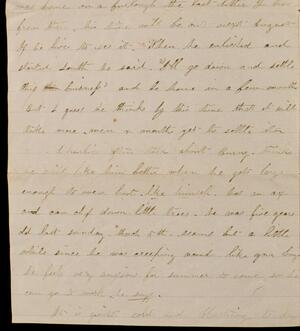 was home on a furlough the last letter I had
from him. His time will be out next August
if he live to see it. When he enlisted and
started South he said I'll go down and settle
this business and be home in a few months
But I guess he thinks by this time that it will
take more men & months yet to settle it
Charlie often talk about
like him better when he gets large
enough to wear boot like him. has an ax
and can chop down little trees. he was five years
old last sunday March 5th. seems but a little
while since he was creeping round like your boy
he feels very anxious for summer to come so he
can go to work he says.
It is quite cold and blustering to day